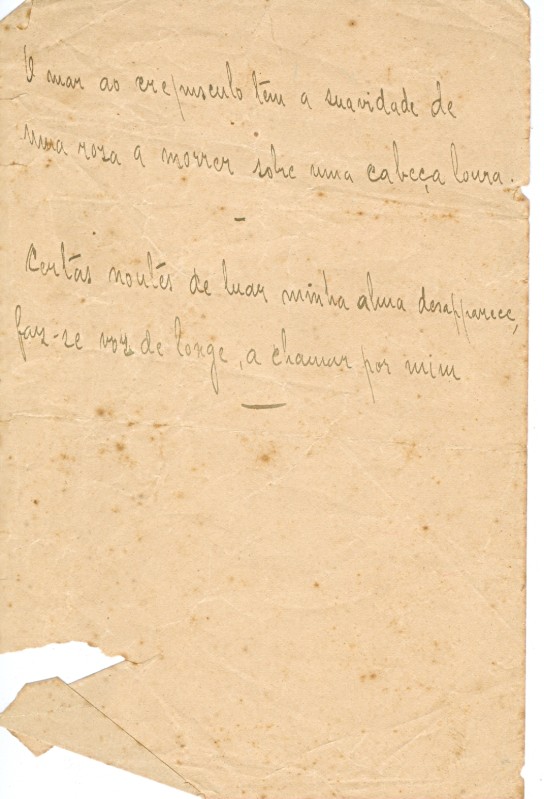 O mar ao crepusculo têm a suavidade de
uma rosa a morrer sobre uma cabeça loura.
Certas noutes de luar minha alma desapparece,
faz-se voz de longe, a chamar por mim